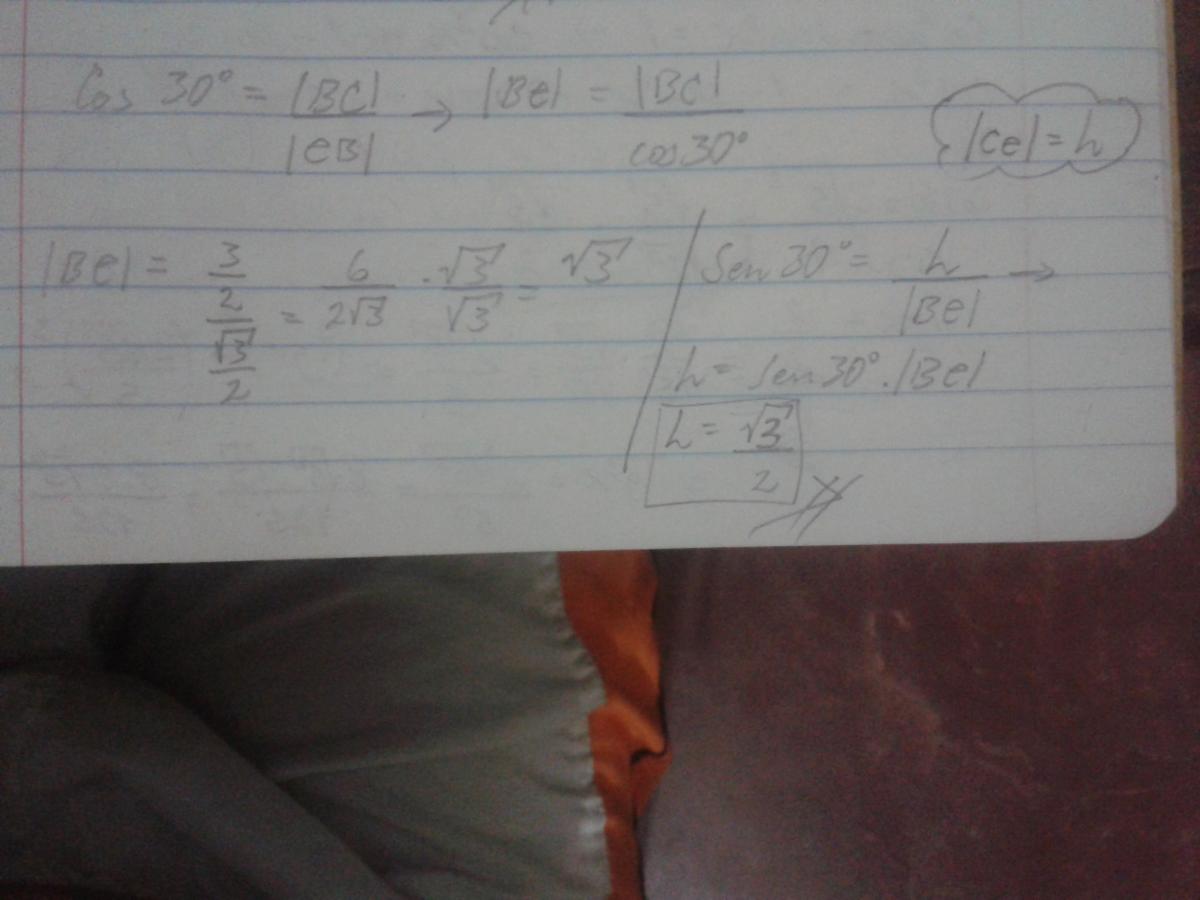 Cos 30° = |BC| / |eB| → |Be| = |BC| / cos30°
|Ce| = h
|Be| = 3/2 / √3/2 = 6 / 2√3 . √3 / √3 = √3
Sen 30° = h / |Be| →
h = sen 30° . |Be|
h = √3 / 2